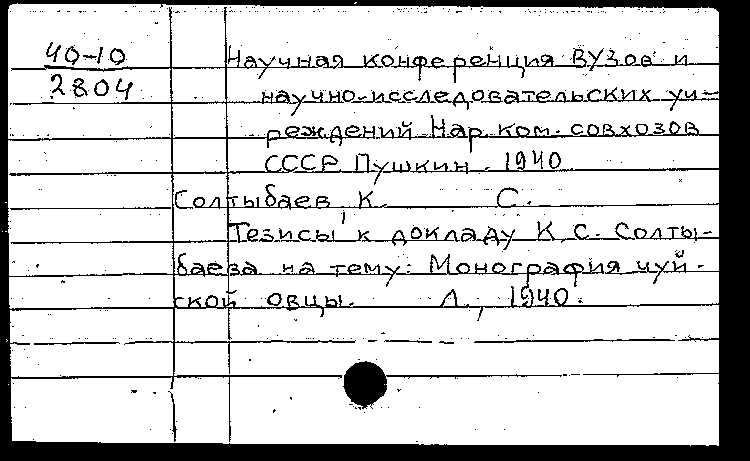 40-10
2804
Научная конференция ВУЗов и
научно-исследовательских уч-
реждений Нар. ком. совхозов
СССР. Пушкин. 1940
Солтыбаев, К. С.
Тезисы к докладу К. С. Солты-
баева на тему: Монография чуй-
ской овцы. Л., 1940.